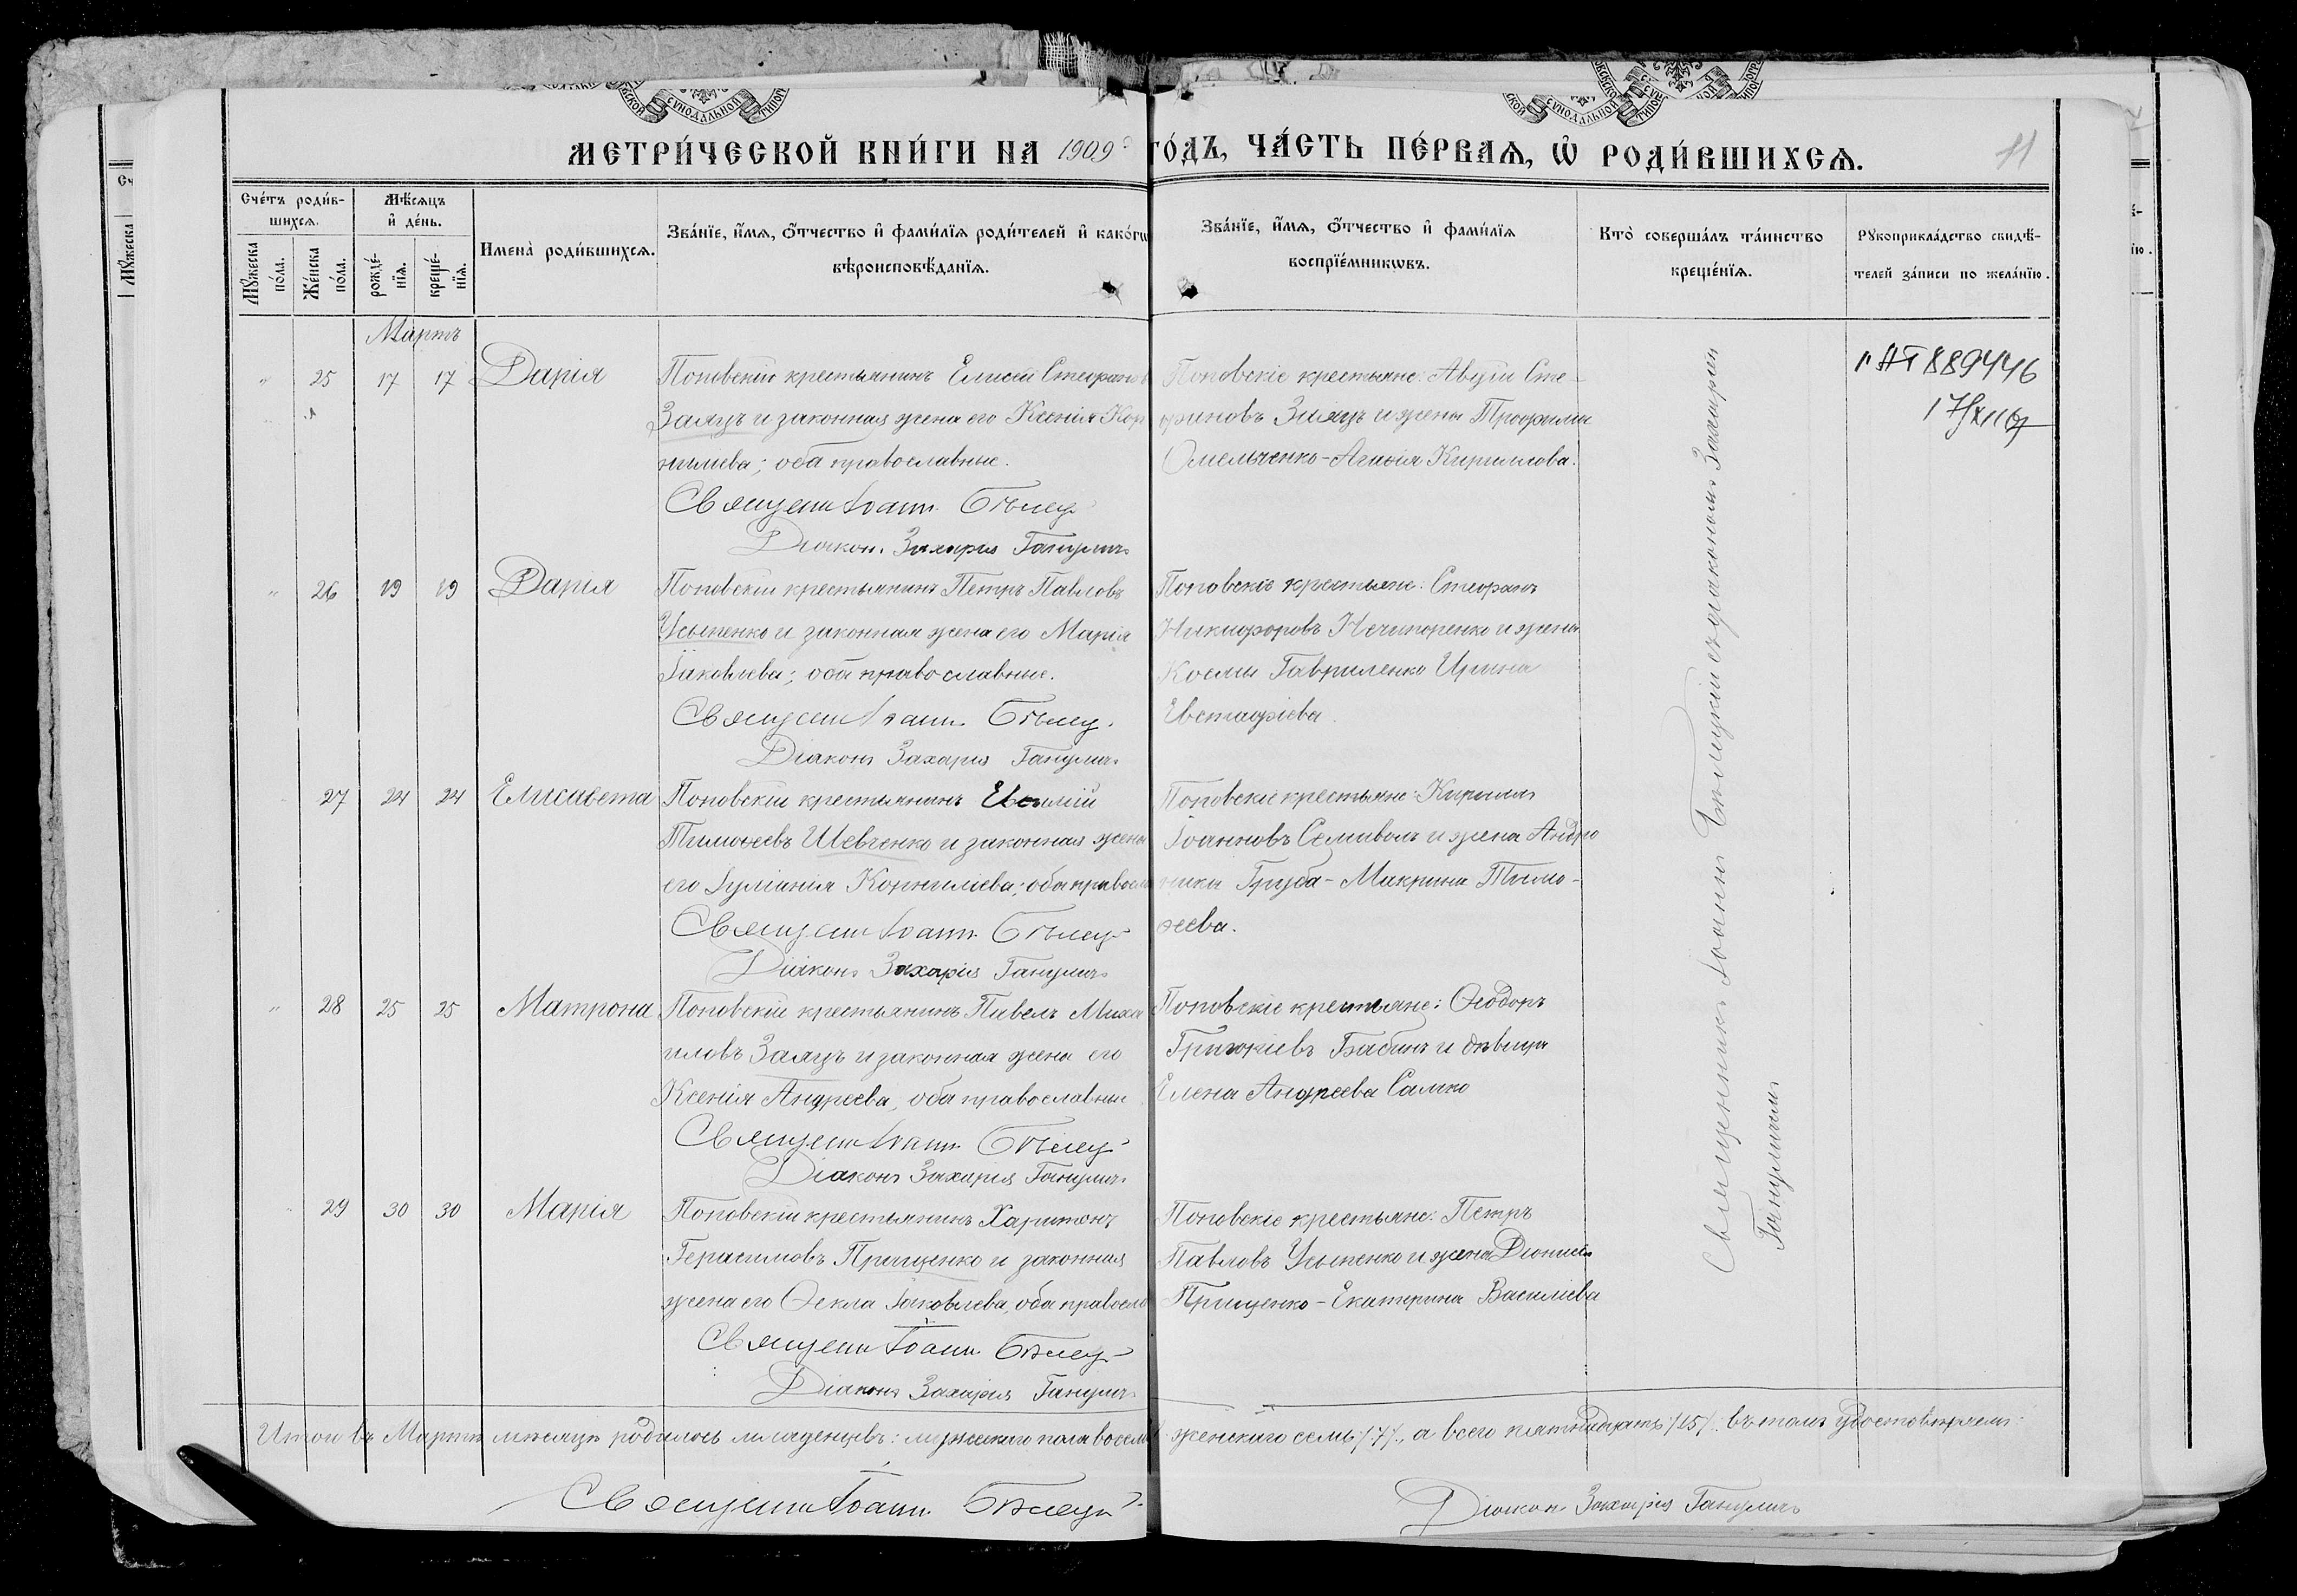 МЕТРИ́ЧЕСКОЙ КНИ́ГИ НА 1909 ГО́ДЪ, ЧА́СТЬ ПЕ́РВАЯ, Ѡ҆ РОДИ́ВШИХСЯ.
11
Сче́тъ роди́в-
шихся.
Мѣ́сяцъ
и҆ де́нь.
Мꙋ́жеска
по́ла.
Же́нска
по́ла.
рожде́-
нїя.
креще́-
нїя.
И҆мена̀ роди́вшихся.
Зва́нїе, и҆́мя, ѻ҆́тчество и҆ фами́лїя роди́телей и҆ како́гѡ
вѣроисповѣ́данїя.
Зва́нїе, и҆́мя, ѻ҆́тчество и҆ фами́лїя
воспрїе́мникѡвъ.
Кто̀ соверша́лъ та́инство
креще́нїя.
Рꙋкоприкла́дство свидѣ́-
телей за́писи по жела́нїю.
Мартъ
25 17 17 Дарія
Поповскій крестьянинъ Елисей Стефановъ
Заяцъ и законная жена его Ксенія Кор
нилиева; оба православные.
Священ Іоанн Бѣлец
Діакон Захарія Ганулич
Поповскіе крестьяне: Сте-
фановъ Заяцъ и жена Трофима
Омельченко - Агафія Кириллова.
889446
26 19 19 Дарія
Поповскій крестьянинъ Петръ Павловъ
Усыпенко и законная жена его Марія
Іаковлева; оба православные.
Священ Іоанн Бѣлец
Діаконъ Захарія Ганулич
Поповскіе крестьяне: Стефанъ
Никифоровъ Нечипоренко и жена
Космы Гавриленко Ирина
Евстафіева
27 24 24 Елисавета
Поповскій крестьянинъ
Тимофеевъ Шевченко и законная жена
его Іуліанія Корниліева; оба правосла
Священ Іоанн Бѣлец
Діаконъ Захарія Ганулич
Поповскіе крестьяне: Кириллъ
Іоанновъ Семиволъ и жена Андро
ника Груба - Макрина Тимо-
ѳеева.
28 25 25 Матрона
Поповскій крестьянинъ Павелъ Миха
иловъ Заяцъ и законная жена его
Ксенія Андреева, оба православные
Священ Іоанн Бѣлец
Діаконъ Захарія Ганулич
Поповскіе крестьяне: Ѳеодоръ
Бабичъ и дѣвица
Елена Андреева Салко
29 30 30 Марія
Поповскій крестьянинъ Харитонъ
Герасимовъ Прищенко и законная
жена его Ѳекла Іаковлева, оба правосла
Священ Іоанн Бѣлец
Діаконъ Захарія Ганулич
Поповскіе крестьяне: Петръ
Павловъ Усыпенко и жена Діонисія
Прищенко - Екатерина Василіева
Священникъ Іоаннъ Бѣлецкій съ діакономъ Захаріем
Гануличем
Итого въ Мартѣ мѣсяцѣ родилось младенцевъ: мужескаго пола восемь женскаго семь /7/, а всего пятнадцать /15/. въ томъ удостовѣряемъ:
Священ Іоанн Бѣлец
Діакон Захарія Ганулич